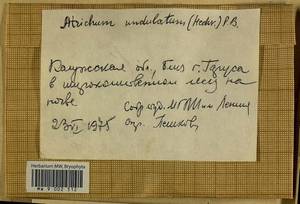 Atrichum undulatum (Hedw.) P.B.
Калужская обл., близ г. Таруса
в широколиственном лесу на
почве
Собр. МГПИ им Ленина
23 VI 1975 опр.
Herbarium MW, Bryophyta
MW 9 002 112